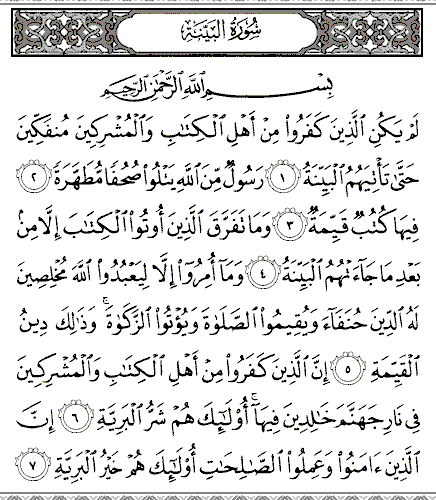 سُورَةُ البَيِّنَةِ
بِسْمِ ٱللَّهِ ٱلرَّحْمَٰنِ ٱلرَّحِيمِ
لَمْ يَكُنِ ٱلَّذِينَ كَفَرُوا۟ مِنْ أَهْلِ ٱلْكِتَٰبِ وَٱلْمُشْرِكِينَ مُنفَكِّينَ
حَتَّىٰ تَأْتِيَهُمُ ٱلْبَيِّنَةُ ١ رَسُولٌ مِّنَ ٱللَّهِ يَتْلُوا۟ صُحُفًا مُّطَهَّرَةً ٢
فِيهَا كُتُبٌ قَيِّمَةٌ ٣ وَمَا تَفَرَّقَ ٱلَّذِينَ أُوتُوا۟ ٱلْكِتَٰبَ إِلَّا مِنۢ
بَعْدِ مَا جَآءَتْهُمُ ٱلْبَيِّنَةُ ٤ وَمَآ أُمِرُوٓا۟ إِلَّا لِيَعْبُدُوا۟ ٱللَّهَ مُخْلِصِينَ
لَهُ ٱلدِّينَ حُنَفَآءَ وَيُقِيمُوا۟ ٱلصَّلَوٰةَ وَيُؤْتُوا۟ ٱلزَّكَوٰةَ ۚ وَذَٰلِكَ دِينُ
ٱلْقَيِّمَةِ ٥ إِنَّ ٱلَّذِينَ كَفَرُوا۟ مِنْ أَهْلِ ٱلْكِتَٰبِ وَٱلْمُشْرِكِينَ
فِى نَارِ جَهَنَّمَ خَٰلِدِينَ فِيهَآ ۚ أُو۟لَٰٓئِكَ هُمْ شَرُّ ٱلْبَرِيَّةِ ٦ إِنَّ
ٱلَّذِينَ ءَامَنُوا۟ وَعَمِلُوا۟ ٱلصَّٰلِحَٰتِ أُو۟لَٰٓئِكَ هُمْ خَيْرُ ٱلْبَرِيَّةِ ٧